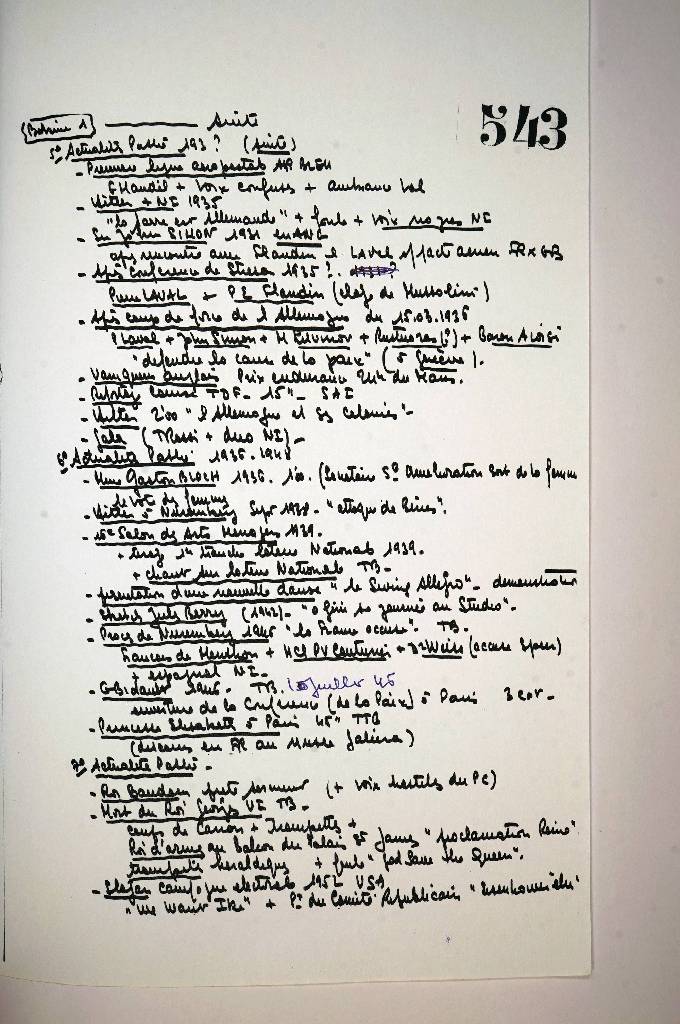 543
Bobine 1 suite
5° Actualités Pathé 193 ? (suite)
- Première ligne aéropostale
Flandin + Voix confuses + ambiance
- Hitler + NI 1935
"la Sarre est Allemande" + foule + Voix NI
- Sir John SIMON 1931 en ANG
rencontre avec Flandin et LAVAL
- Après conférence de Stresa 1935 ?
Pierre LAVAL + P.E. Flandin (éloge de Mussolini)
- Après coup de force de l'Allemagne du 15.03.1935
P Laval + John Simon + M Litvinov + (?) + Baron Aloisi
"défendre la cause de la paix" (à Genève).
- Vainqueurs anglais Prix endurance 24h du Mans.
- TDF - 15" -
- Hitler 2'00 "l'Allemagne et ses colonies" -
- Gala (TRossi + duo NI) -
6° Actualités Pathé 1935.1948
- Mme Gaston BLOCH 1935. 1'00. amélioration sort de la femme
le vote des femmes
- Hitler à Nuremberg Sept 1938 - "
- Salon des Arts Ménagers 1939.
+ tirage 1re tranche loterie Nationale 1939.
+ chant sur loterie Nationale TB -
- présentation d'une nouvelle danse "le Swing Allegro" - démonstration
- Jules Berry (1942) - "a fini sa journée au Studio" -
- Procès de Nuremberg 1946 "la France accuse". TB -
François de Menthon + + Dr Weiss (accuse Speer)
+ espagnol NI -
- G Bidault 1946 - TB. juillet 46
ouverture de la Conférence (de la Paix) à Paris
- Princesse Elisabeth à Paris 45" TTB
(discours en FR au Musée Galiera)
7° Actualités Pathé -
- Roi Baudoin prête serment (+ voix hostiles du PC)
- Mort du Roi Georges VI TB -
coups de Canon + Trompettes +
Roi d'armes au Balcon du Palais St James "proclamation Reine"
trompette héraldiques + foule "God Save the Queen".
- Slogan campagne électorale 1952 USA
"We want Ike" + Pt du Comité Républicain "